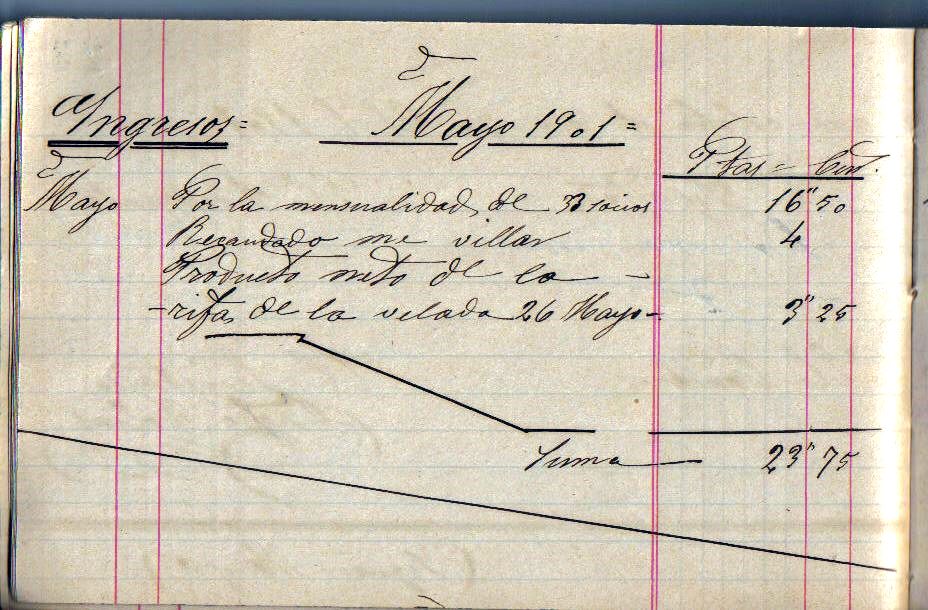 Ingresos = Mayo 1901 =
Ptas = Cent.
Mayo Por la mensualidad de 33 socios 16" 50
Recaudado me villar 4
Producto neto de la -
- rifa de la velada 26 Mayo - 3" 25
Suma 23" 75